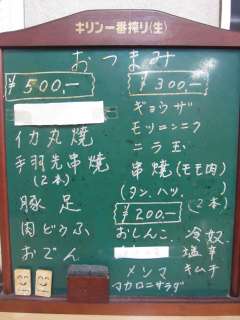 キリン一番搾り(生)
おつまみ
¥500.—
イカ丸焼
手羽先串焼
(2本)
豚足
肉どうふ
おでん
¥300.—
ギョウザ
モツニンニク
ニラ玉
串焼(モモ肉)
(タン、ハツ、
(2本)
¥200.—
おしんこ
冷奴
塩辛
メンマ
キムチ
マカロニサラダ